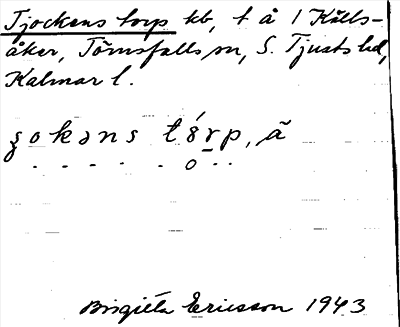 Tjockens torp kb, t å 1 Källs-
åker, Törnsfalls sn, S. Tjusts hd,
Kalmar l.
ʒokəns tórp, ã
Birgitta Ericsson 1943